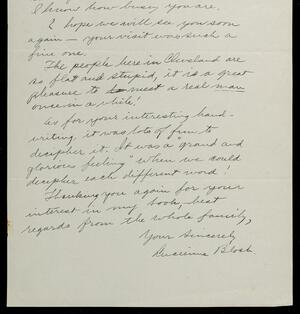 I know how busy you are.
I hope we will see you soon
again — your visit was such a
fine one.
The people here in Cleveland are
as flat and stupid, it is a great
pleasure to meet a real man
once in a while!
As for your interesting hand-
writing it was lots of fun to
decipher it. It was a "grand and
glorious feeling" when we could
decipher each different word!
Thanking you again for your
interest in my book, best
regards from the whole family,
Your Sincerely
Lucienne Bloch.